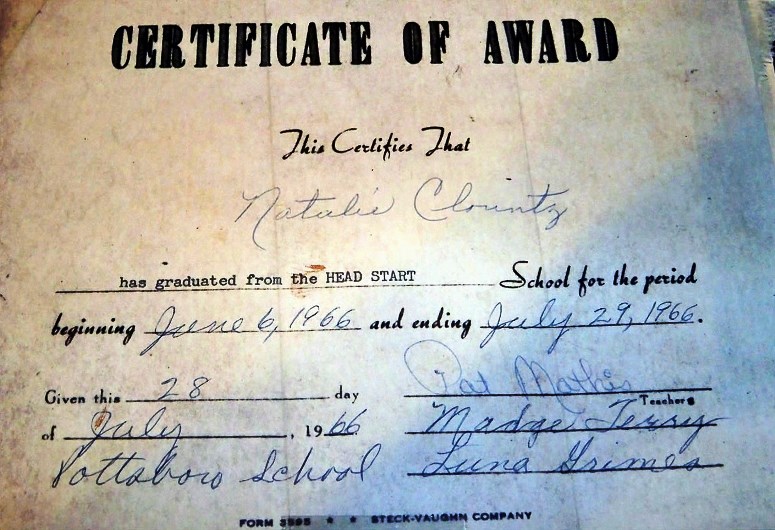 CERTIFICATE OF AWARD
This Certifies That
Natalie Clountz
has graduated from the HEAD START School for the period
beginning June 6, 1966 and ending July 29, 1966.
Given this 28 day Pat Mathis
Teachers
of July, 1966 Madge Terry
Pottsboro School Luna Grimes
FORM 3595 ★ ★ STECK-VAUGHN COMPANY